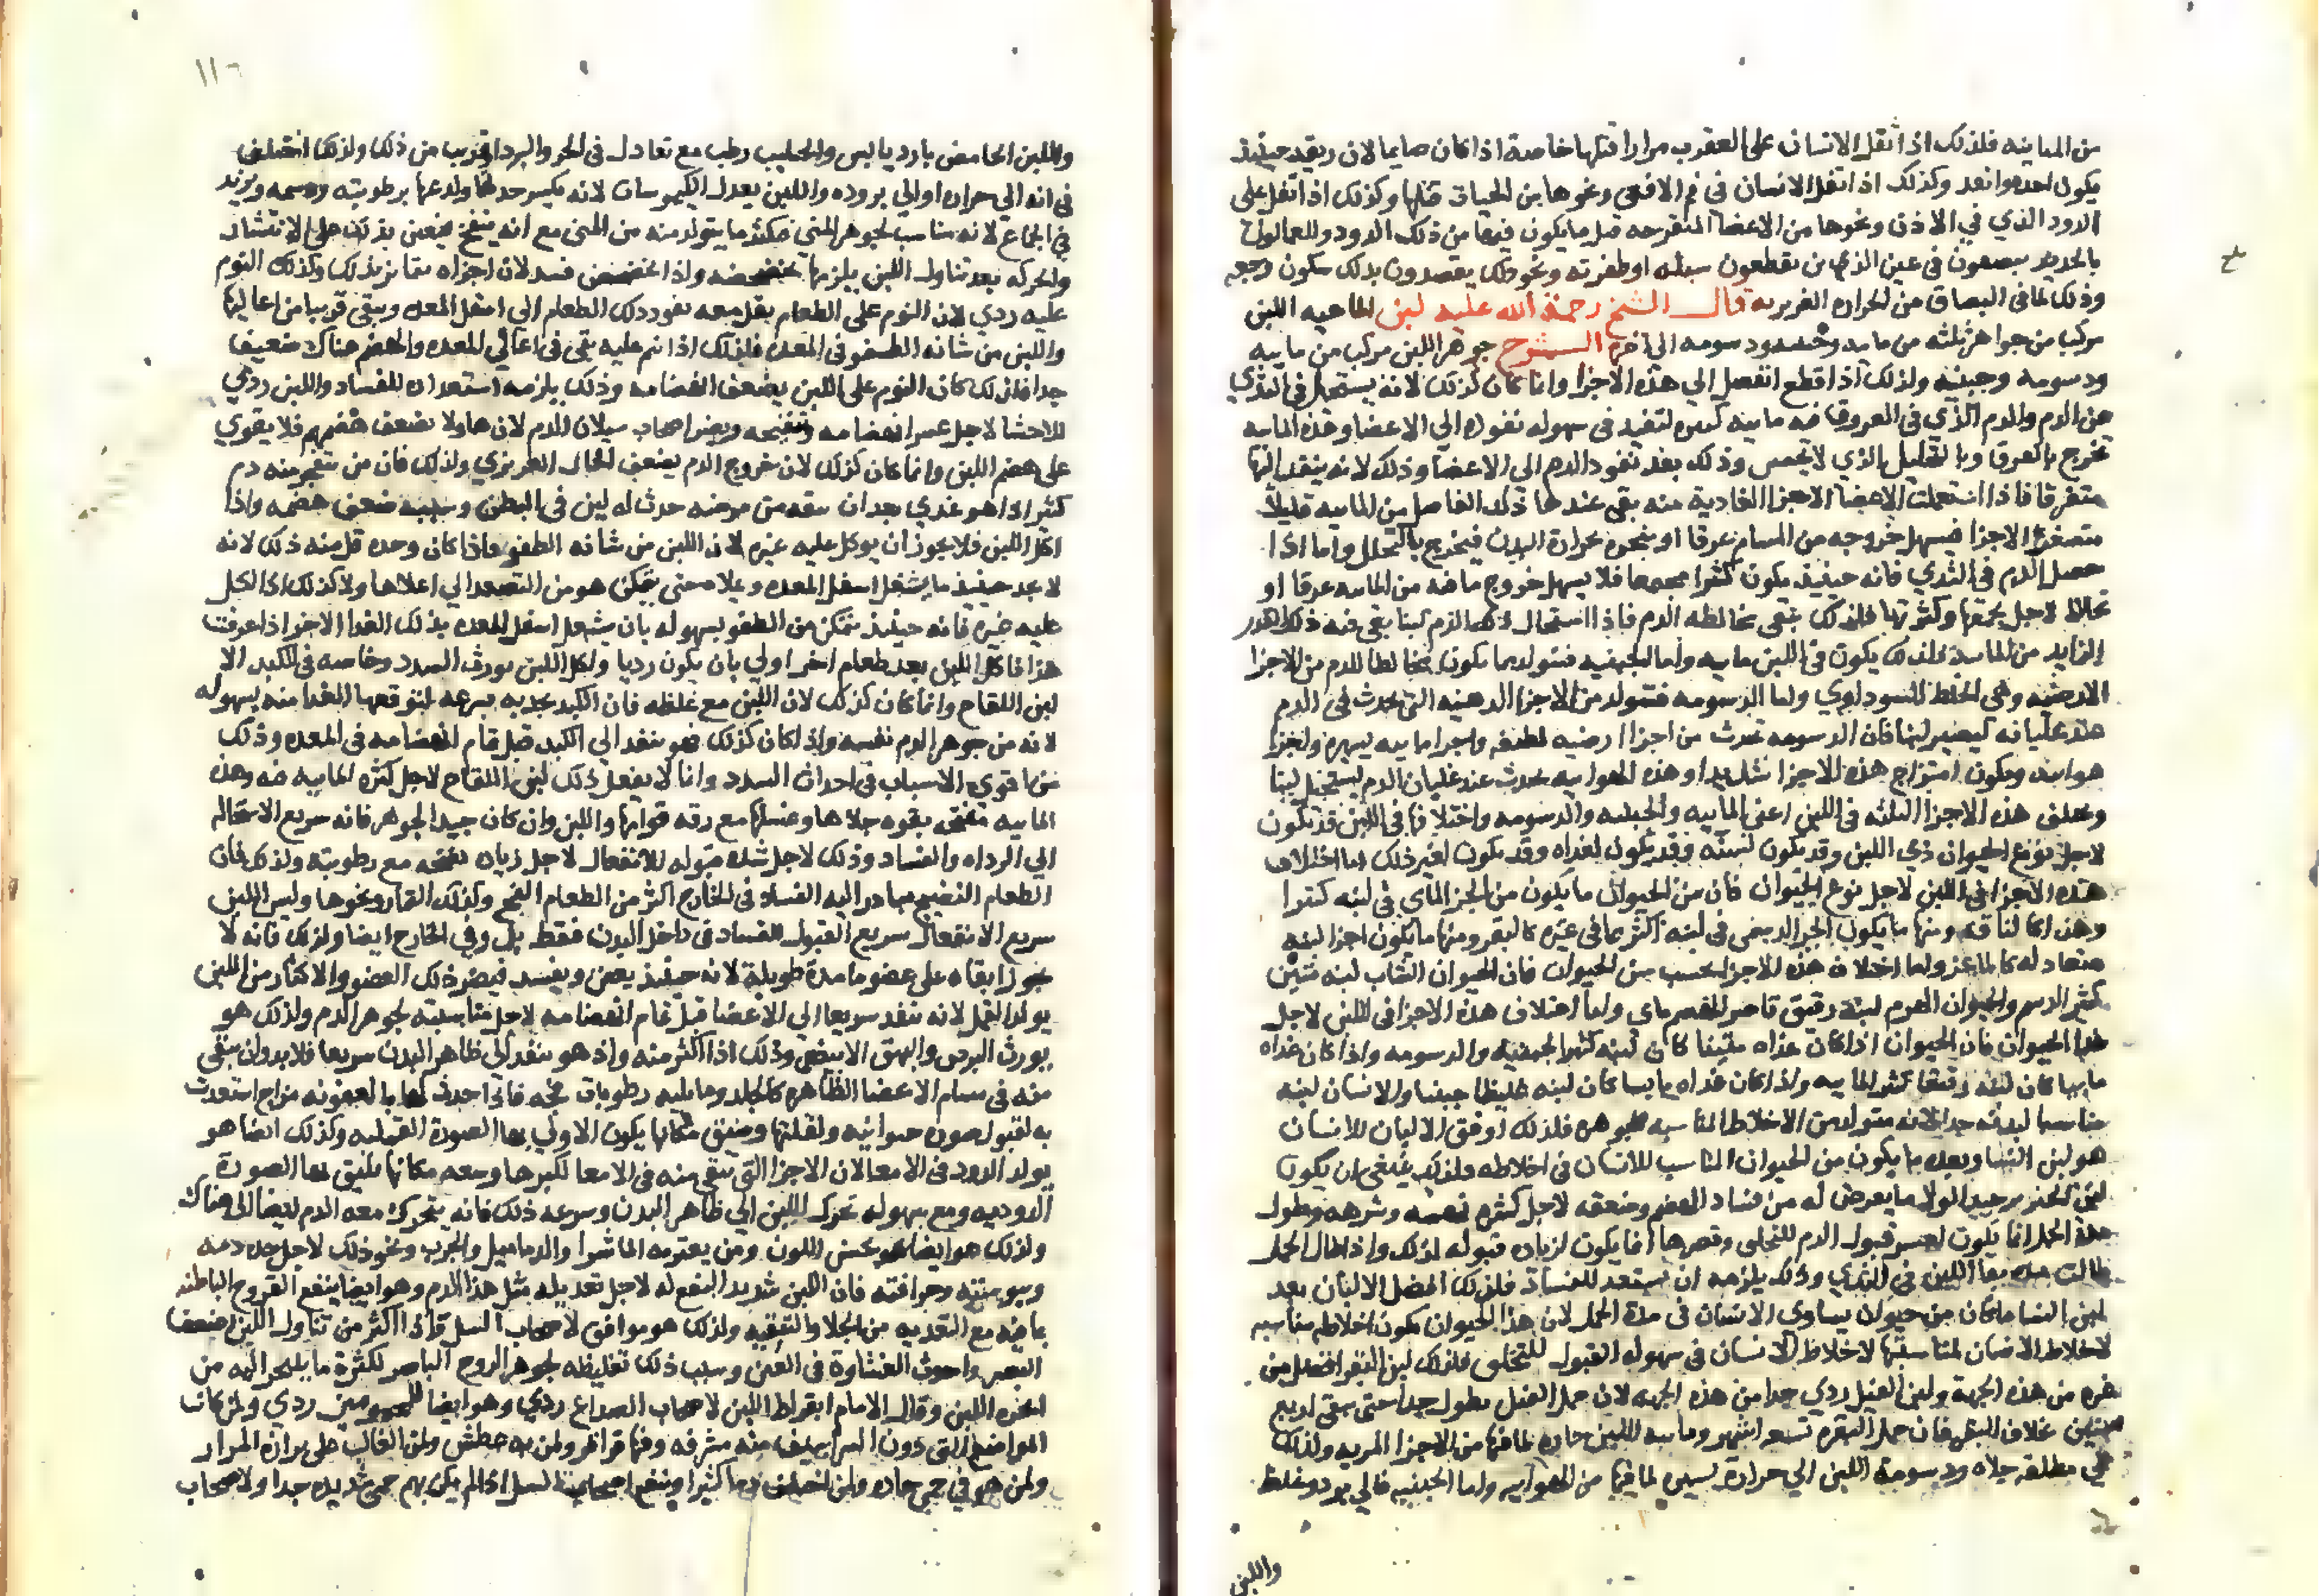 من المباينه فلذلك اذا ثفل الانسان على العقرب مرارا قتلها خاصة اذا كان صايما لان ريقه حينيذ
يكون احد وانفد وكذلك اذا تفل الانسان في فم الافعى ونحوها من الحيات قتلها وكذلك اذا تفل على
الدود الذي في الاذن ونحوها من الاعضا المتقرحه قتل ما يكون فيها من ذلك الدود
بالحديد يبصقون في عين الذي من يقطعون سبله او ظفرته ونحو ذلك يقصدون بذلك سكون وجعه
وذلك لما في البصاق من الحراره الغريزيه قال الشيخ رحمة الله عليه لبن الماهيه اللبن
مركب من جواهر ثلثه من مايه وجبنيه ودسومه الى اخره الشرح جوهر اللبن مركب من مايه
ودسومه وجبنيه ولذلك اذا قطع انفصل الي هذه الاجزا وانما كان كذلك لانه يستحيل في الثدي
عن الدم والدم الذي في العروق فيه مايه كثيره لتفيد في سهوله نفوذه الي الاعضا وهذه المايه
تخرج بالعرق وبالتحليل الذي لا يحس وذلك بعد نفوذ الدم الى الاعضا وذلك لانه ينفد اليها
متفرقا فاذا استعملت الاعضا الاجزا الغاديه منه بقى عندها ذلك الفاصل من المايه قليلا
متصغر الاجزا فيسهل خروجه من المسام عرقا او يتبخر بحرارة البدن فيخرج بالتحلل واما اذا
حصل الدم في الثدي فانه حينيذ يكون كثيرا مجتمعا فلا يسهل خروج ما فيه من المايه عرقا او
تحللا لاجل تجمعها وكثرتها فلذلك تبقى مخالطه الدم فاذا استحال ذلك الدم لبنا بقى فيه ذلك القدر
الزايد من المايه فلذلك يكون في اللبن مايه واما الجبنيه فتتولد مما يكون مخالطا للدم من الاجزا
الارضيه وهي الخلط السوداوي واما الدسومه فتتولد من الاجزا الدهنيه التي تحدث في الدم
عند غليانه ليصير لبنا فان الدسومه تحدث من اجزا ارضيه لطيفه واجزا مايه يسيره واجزا
هوايه ويكون امتزاج هذه الاجزا شديدا وهذه الهوايه تحدث عند غليان الدم ليستحيل لبنا
وتختلف هذه الاجزا الثلثه في اللبن اعني المايه والجبنيه والدسومه واختلافها في اللبن قد يكون
لاجل نوع الحيوان ذي اللبن وقد يكون لسنه وقد يكون لغذاه وقد يكون لغير ذلك اما اختلاف
هذه الاجزا في اللبن لاجل نوع الحيوان فان من الحيوان ما يكون من الجز الماي في لبنه كثيرا
وهذا كالناقه ومنها ما يكون الجز الدسمي في لبنه اكثر مما في غيره كالبقر ومنها ما يكون اجزا لبنه
متعادله كالماعز واما اختلاف هذه الاجزا بحسب سن الحيوان فان الحيوان الشاب لبنه متين
كثير الدسم والحيوان الهرم لبنه رقيق قاصر الهضم ماي واما اختلاف هذه الاجزا في اللبن لاجل
غذا الحيوان فان الحيوان اذا كان غذاه متينا كان لبنه كثير الجبنيه والدسومه واذا كان غذاه
مايها كان لبنه رقيقا كثير المايه واذا كان غذاه يابسا كان لبنه غليظا جبنيا والانسان لبنه
مناسبا لبدنه جدا لانه متولد من الاخلاط المناسبه لجوهره فلذلك اوفق الالبان للانسان
هو لبن النسا وبعده ما يكون من الحيوان المناسب للانسان في اخلاطه ولذلك ينبغى ان يكون
لبن الخنزير جيدا لولا ما يعرض له من فساد الهضم وضعفه لاجل كثرة نهمه وشرهه وطول
مدة الحمل انما يكون لعسر قبول الدم للتخلق وقصرها انما يكون لزياده قبوله لذلك واذا طال الحمل
طالت مده بقا اللبن في الثدي وذلك يلزمه ان يستعد للفساد فلذلك افضل الالبان بعد
لبن النسا ما كان من حيوان يساوى الانسان في مدة الحمل لان هذا الحيوان يكون اخلاطه مناسبه
لاخلاط الانسان لمناسبتها لاخلاط الانسان في سهوله القبول للتخلق فلذلك لبن البقر افضل من
غيره من هذه الجهة ولبن الفيل ردي جدا من هذه الجهه لان حمل الفيل يطول جدا حتى يبقى اربع
سنين بخلاف البقر فان حمل البقره تسعه اشهر ومايه اللبن حاره لما فيها من الاجزا المريه ولذلك
هي مطلقه جلاه ودسومة اللبن الي حرارة يسيره لما فيها من الهوايه واما الجبنيه فالي برد وغلظ
واللبن
١١٦
واللبن الحامض بارد يابس والحليب رطب مع تعادل في الحر والبرد او قريب من ذلك ولذلك اختلف
في انه الي حراره او الي بروده واللبن يعدل الكيموسات لانه يكسر حدتها ولدعها برطوبته ودسمه ويزيد
في الجماع لانه مناسب لجوهر المني فيكثر ما يتولد منه من المنى مع انه ينفخ فيعين بذلك على الانتشار
والحركه بعد تناول اللبن يلزمها تخضخضه واذا تخضخض فسد لان اجزاه تتمايز بذلك وكذلك النوم
عليه ردي لان النوم على الطعام يقل معه نفوذ ذلك الطعام الى اسفل المعده ويبقى قريبا من اعاليها
واللبن من شانه الطفو في المعده فلذلك اذا نم عليه بقى في اعالي المعده والهضم هناك ضعيف
جدا فلذلك كان النوم على اللبن يضعف انهضامه وذلك يلزمه استعداده للفساد واللبن ردي
للاحشا لاجل عسر انهضامه ونفخه ويضر اصحاب سيلان الدم لان هاولا تضعف هضمهم فلا يقوي
على هضم اللبن وانما كان كذلك لان خروج الدم يضعف الحار الغريزي ولذلك فان من ينفجر منه دم
كثير اذا هو غذي بعد ان ينقه من مرضه حدث له لين في البطن وسببه ضعف هضمه واذا
اكل اللبن فلا يجوز ان يوكل عليه غيره لان اللبن من شانه الطفو واذا كان وحده قل منه ذلك لانه
لا يجد حينيذ ما يشغل اسفل المعده ويملاه حتى يتمكن هو من التصعد الي اعلاها ولا كذلك اذا اكل
عليه غيره فانه حينيذ يتمكن من الطفو بسهوله بان يشغل اسفل المعده بذلك الغدا الاخر اذا عرفت
هذا فاكل اللبن بعد طعام اخر اولي بان يكون رديا واكل اللبن يورث السدد وخاصه في الكبد الا
لبن اللقاح وانما كان كذلك لان اللبن مع غلظه فان الكبد يجذبه بسرعه لتوقعها الغدا منه بسهوله
لانه من جوهر الدم نفسه واذا كان كذلك فهو ينفد الي الكبد قبل تمام انهضامه في المعده وذلك
من اقوي الاسباب في احداث السدد وانما لا يفعل ذلك لبن اللقاح لاجل كثره المايه فيه وهذه
المايه تفتح بقوه جلاها وغسلها مع رقه قوامها واللبن وان كان جيد الجوهر فانه سريع الاستحاله
الي الرداه والفساد وذلك لاجل شده قبوله للانفعال لاجل زياده نضجه مع رطوبته ولذلك فان
الطعام النضيج يبادر اليه الفساد في الخارج اكثر من الطعام الفج وكذلك الثمار ونحوها وليس اللبن
سريع الانفعال سريع القبول للفساد في داخل البدن فقط بل وفي الخارج ايضا ولذلك فانه لا
يجوز ابقاه على عضو ما مدة طويلة لانه حينيذ يعفن ويفسد فيضر ذلك العضو والاكثار من اللبن
يولد القمل لانه ينفد سريعا الي الاعضا قبل تمام انهضامه لاجل مناسبته لجوهر الدم ولذلك هو
يورث البرص والبهق الابيض وذلك اذا اكثر منه واذ هو ينفد الي ظاهر البدن سريعا فلا بد وان يبقى
منه في مسام الاعضا الظاهره كالجلد وما يليه رطوبات فجه فاذا احدث لها بالعفونه مزاج استعدت
به لقبول صوره حيوانيه ولقلتها وضيق مكانها يكون الاولي بها الصورة القمليه وكذلك ايضا هو
يولد الدود في الامعا لان الاجزا التي تبقى منه في الامعا لكبرها وسعه مكانها يليق بها الصورة
الدوديه ومع سهوله تحرك اللبن الي ظاهر البدن وسرعه ذلك فانه يتحرك معه الدم ايضا الى هناك
ولذلك هو ايضا يحسن اللون ومن يعتريه الماشرا والدماميل والجرب ونحو ذلك لاجل حده دمه
ويبوسته وحرافته فان اللبن شديد النفع له لاجل تعديله مثل هذا الدم وهو ايضا ينفع القروح الباطنه
بما فيه مع التغديه من الجلا والتنقيه ولذلك هو موافق لاصحاب السل واذا اكثر من تناول اللبن اضعف
البصر واحدث الغشاوة في العين وسبب ذلك تغليظه لجوهر الروح الباصر لكثرة ما يتبخر اليه من
ابخره اللبن وقال الامام ابقراط اللبن لاصحاب الصداع ردي وهو ايضا للمحمومين ردي ولمن كانت
المواضع التي دون الشراسيف منه مشرفه وفيها قراقر ولمن به عطش ولمن الغالب على برازه المرار
ولمن هو في حمى حاده ولمن اختلف دما كثيرا وينفع اصحاب السل اذا لم يكن بهم حمى شديده جدا ولاصحاب